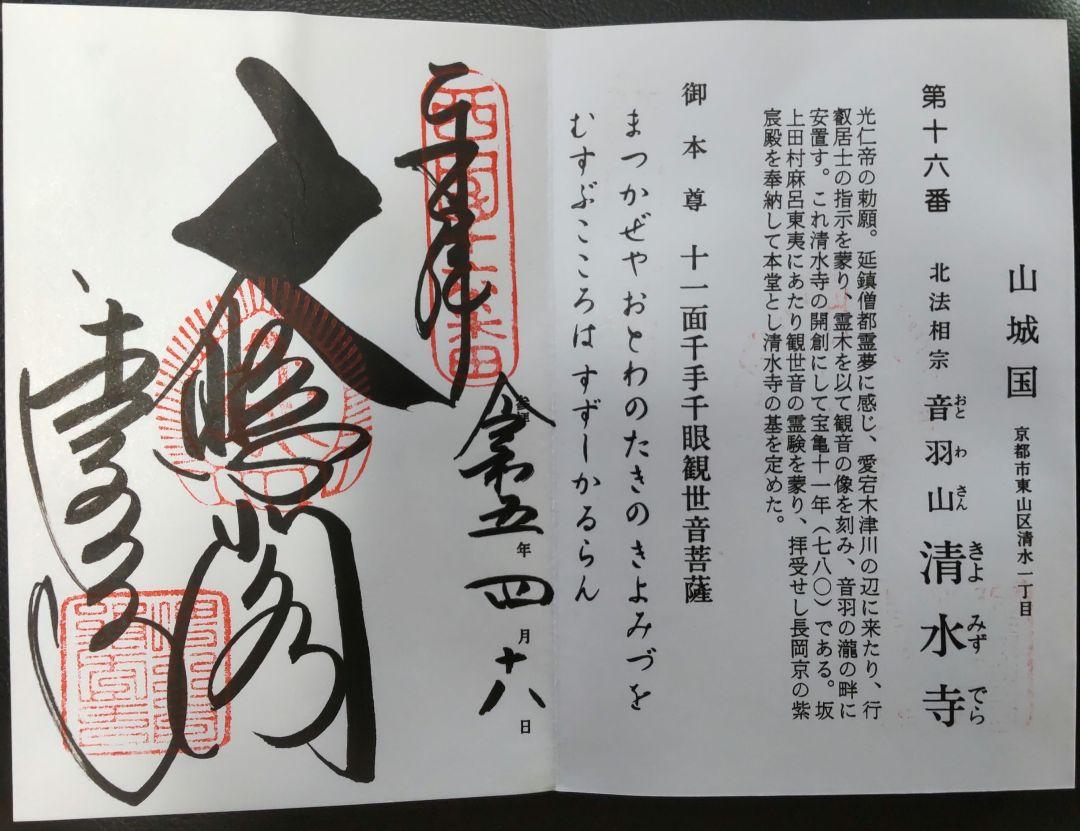 山城国
京都市東山区清水一丁目
第十六番
北法相宗
音羽山
おとわさん
清水寺
きよみずでら
光仁帝の勅願。延鎮僧都霊夢に感じ、愛宕木津川の辺に来たり、行
叡居士の指示を蒙り、霊木を以て観音の像を刻み、音羽の瀧の畔に
安置す。これ清水寺の開創にして宝亀十一年(七八〇)である。坂
上田村麻呂東夷にあたり観世音の霊験を蒙り、拝受せし長岡京の紫
宸殿を奉納して本堂とし清水寺の基を定めた。
御本尊 十一面千手千眼観世音菩薩
まつかぜやおとわのたきのきよみづを
むすぶこころはすずしかるらん
奉拝
西国十六番
令和五年四月十八日
大悲閣
清水寺